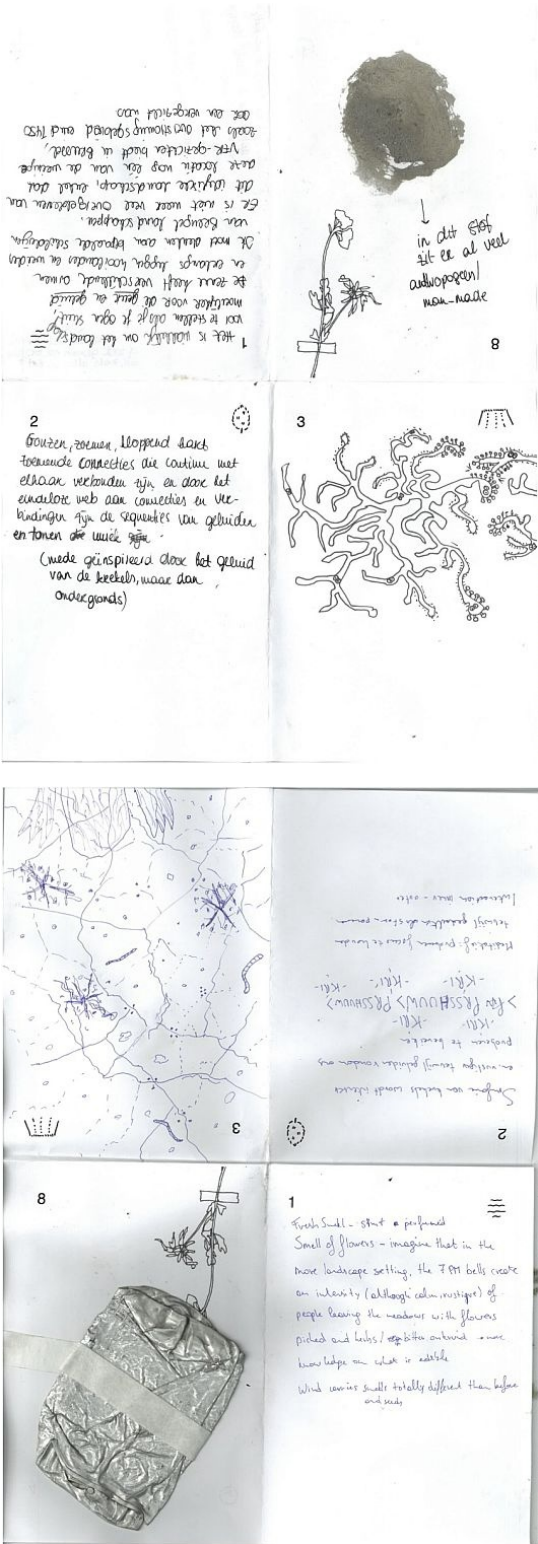 1
Het is moeilijk om het
voor te stellen als je ogen sluit
moeilijker voor de geur en geluid
De zenne heeft verschillende armen
en erlangs liggen hooilanden en weiden
Ik moet denken aan bepaalde schilderijen
van Breugel landschappen.
Er is niet meer veel overgebleven van
dit idyllische landschap, enkel dat
deze locatie nog een van de weinige
gezichten biedt in
zoals het overstromingsgebied eind 1450
ook een vergezicht was
in dit stof
zit er al veel
antropogeen/
man-made
8
2
Gonzen, zoemen, kloppend hart
zoemende connecties die continu met
elkaar verbonden zijn en door het
eindeloze web aan connecties en ver-
bindingen zijn de sequenties van geluiden
en tonen uniek
(mede geïnspireerd door het geluid
van de krekels, maar dan
ondergronds)
3
3
2
van krekels wordt intenser
en rustiger terwijl geluiden rondom ons
proberen te
-KRI- -KRI-
PRSSHUUW> PRSSHUUW>
-KRI- -KRI- -KRI-
te houden
terwijl
Interaction inner - outer
8
1
Fresh Smell - perfumed
Smell of flowers - imagine that in the
more landscape setting, the 7PM bells create
an intensity (although calm, rustique) of
people leaving the meadows with flowers
picked and herbs/ more
knowledge on what is edible
Wind carries smells totally different than before
and seeds